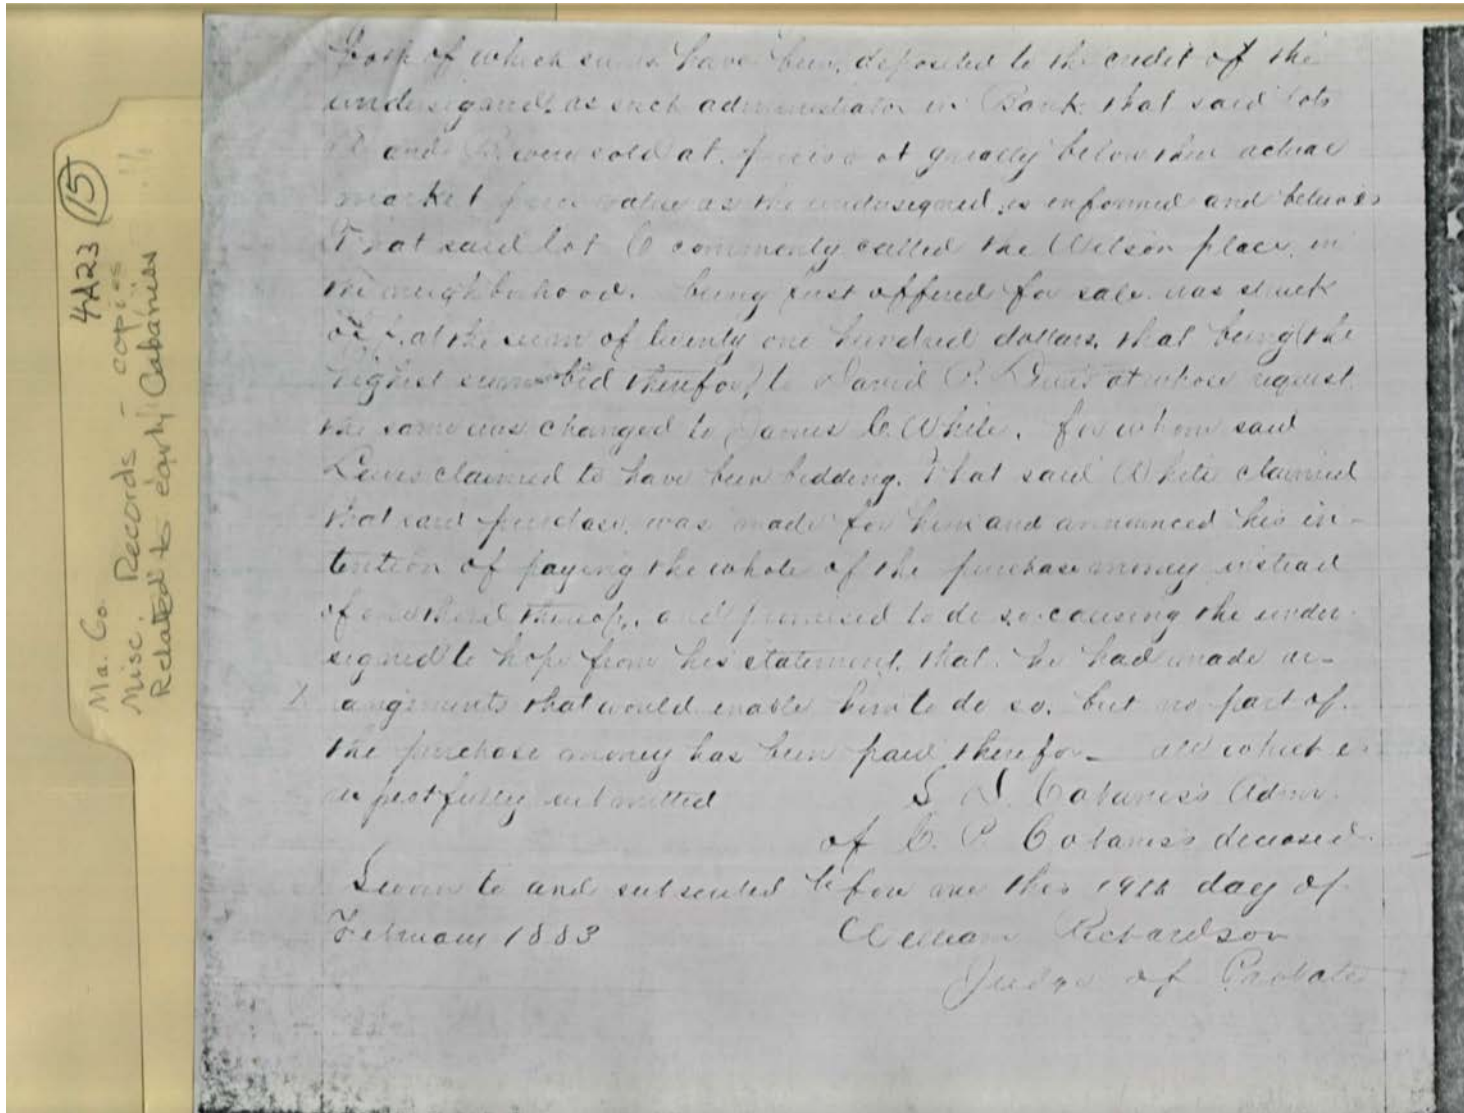 4A23 (15)
Ma. Co.
Misc. Records - copies
Related to early Cabaniss
both of which sums have been deposited to the credit of the
undersigned, as such administrator in Bank. that said lots
and were sold at. at greatly below their actual
market value as the undersigned is informed and believes
That said lot C commonly called the Wilson place, in
the neighborhood. being first offered for sale. was struck
at the sum of twenty one hundred dollars, that being (the
highest sum bid therefor) to David P. Lewis at whose request
the same was changed to James C. White, for whom said
Lewis claimed to have been bidding. That said White claimed
that said purchase was made for him and announced his in-
tention of paying the whole of the purchase money instead
of one third thereof, and promised to do so. causing the under-
signed to hope from his statement, that he had made ar-
angments that would enable him to do so. but no part of
the purchase money has been paid therefor - all which is
respectfully submitted
S D. Cabaniss Admr.
of C. P. Cabaniss deceased
Sworn to and subscribed before me this 19th day of
February 1883
William Richardson
Judge of Probate